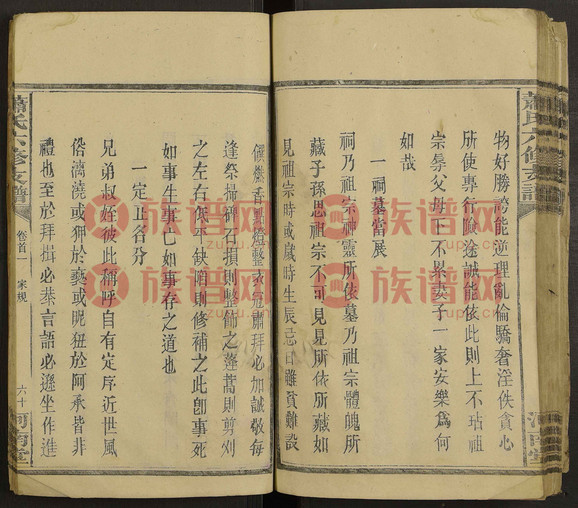 蕭氏六修支譜
物好勝誇能逆理亂倫驕奢淫佚貪心
所使專行險途誠能依此則上不玷祖
宗辱父母下不累妻子一家安樂爲何
如哉
一祠墓當展
祠乃祖宗神靈所依墓乃祖宗體魄所
藏子孫思祖宗不可見見所依所藏如
見祖宗時或歲時生辰忌日雖貧難設
饌然香點燈整衣冠肅拜必加誠敬每
逢祭掃碑石損則整飾之蓬蒿則剪刈
之左右俟缺陷則修補之此卽事死
如事生事亡如事存之道也
一定正名分
兄弟叔姪彼此稱呼自有定序近世風
俗澆或狎於褻或昵狃於阿承皆非
禮也至於拜揖必恭言語必遜坐作進
蕭氏六修支譜
卷首一
家規
六十
河南堂
族谱网
zupu.cn